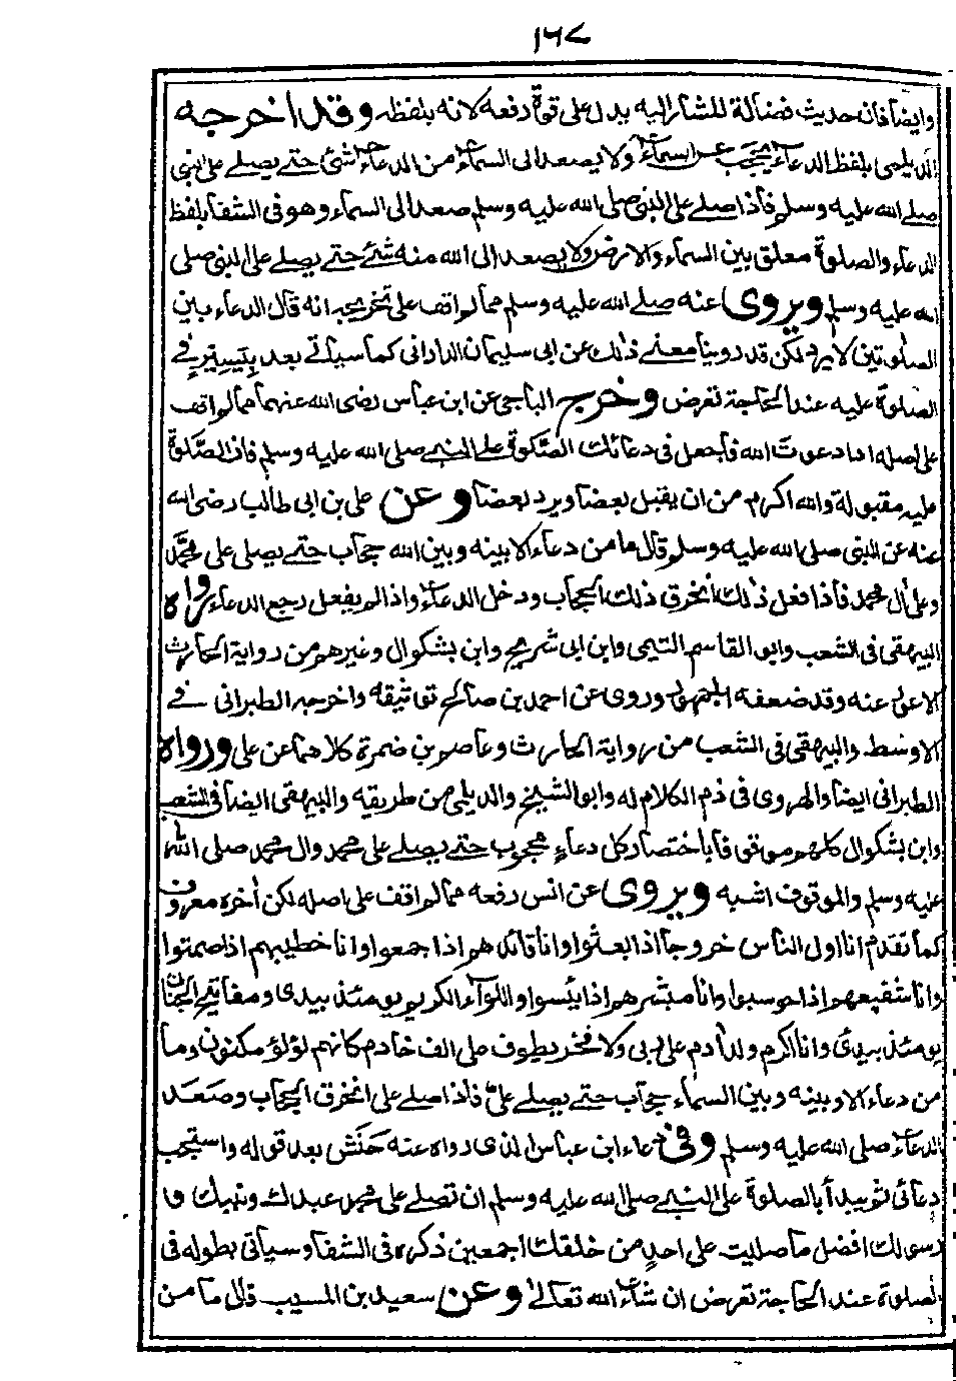 ١٦٧
وايضا فان حديث فضالة المشار اليه يدل على قوة رفعه لانه بلفظه وقد اخرجه
الديلمى بلفظ الدعاء يحجب عن السماء ولا يصعد الى السماء من الدعاء شئ حتى يصلے على النبى
صلے الله عليه وسلم فاذا صلے على النبى صلى الله عليه وسلم صعد الى السماء وهو فى الشفا بلفظ
الدعاء والصلوة معلق بين السماء والارض ولا يصعد الى الله منه شئ حتے يصلے على النبى صلى
الله عليه وسلم ويروى عنه صلے الله عليه وسلم مما لم اقف على تخريجه انه قال الدعاء بين
الصلوتين لا يرد لكن قد روينا معنے ذلك عن ابى سليمان الدارانى كما سياتے بعد بيسير فے
الصلوة عليه عند الحاجة تعرض وخرج الباجى عن ابن عباس رضى الله عنهما مما لم اقف
على اصله اذا دعوت الله فاجعل فى دعائك الصلوة على النبے صلى الله عليه وسلم فان الصلوة
عليه مقبولة والله اكرم من ان يقبل بعضا ويرد بعضا وعن على بن ابى طالب رضى الله
عنه عن النبى صلى الله عليه وسلم قال ما من دعاء الا بينه وبين الله حجاب حتے يصلى على محمد
وعلى آل محمد فاذا فعل ذلك انخرق ذلك الحجاب ودخل الدعاء واذا لم يفعل رجع الدعاء رواه
البيهقى فى الشعب وابو القاسم التيمى وابن ابى شريح وابن بشكوال وغيرهم من رواية الحارث
الاعور عنه وقد ضعفه الجمهور وروى عن احمد بن صالح توثيقه واخرجه الطبرانى فے
الاوسط والبيهقى فى الشعب من رواية الحارث وعاصم بن ضمرة كلاهما عن على ورواه
الطبرانى ايضا والهروى فى ذم الكلام له وابو الشيخ والديلمى من طريقه والبيهقى ايضا فى الشعب
وابن بشكوال كلهم موقوفا باختصار كل دعاء محجوب حتے يصلے على محمد وال محمد صلى الله
عليه وسلم والموقوف اشبه ويروى عن انس رفعه مما لم اقف على اصله لكن أخره معروف
كما تقدم انا اول الناس خروجا اذا بعثوا وانا قائدهم اذا جمعوا وانا خطيبهم اذا صمتوا
وانا شفيعهم اذا حوسبوا وانا مبشرهم اذا يئسوا واللواء الكريم يومئذ بيدى ومفاتيح الجنان
يومئذ بيدى وانا اكرم ولد أدم على ربى ولا فخر يطوف على الف خادم كانهم لؤلؤ مكنون وما
من دعاء الا وبينه وبين السماء حجاب حتے يصلے على فاذا صلے على انخرق الحجاب وصعد
الدعاء صلى الله عليه وسلم وفى دعاء ابن عباس الذى رواه عنه حنش بعد قوله واستجب
دعائى ثم يبدأ بالصلوة على النبے صلى الله عليه وسلم ان تصلے على محمد عبدك ونبيك و
رسولك افضل ما صليت على احد من خلقك اجمعين ذكره فى الشفا وسياتى بطوله فى
الصلوة عند الحاجة تعرض ان شاء الله تعالى وعن سعيد بن المسيب قال ما من